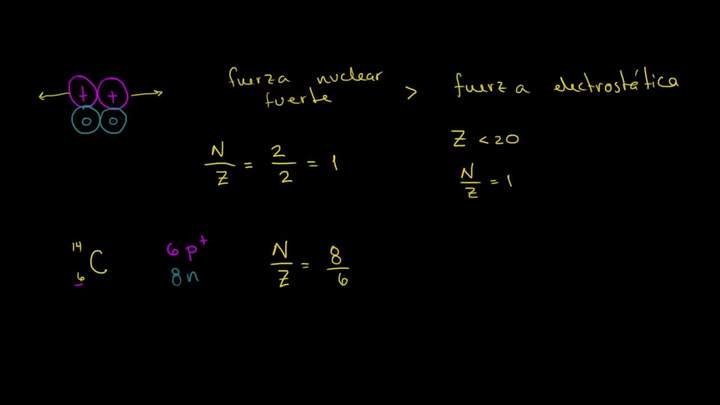 + +
0 0
fuerza nuclear fuerte > fuerza electrostática
N/Z = 2/2 = 1
Z < 20
N/Z = 1
¹⁴₆C
6p⁺
8n
N/Z = 8/6